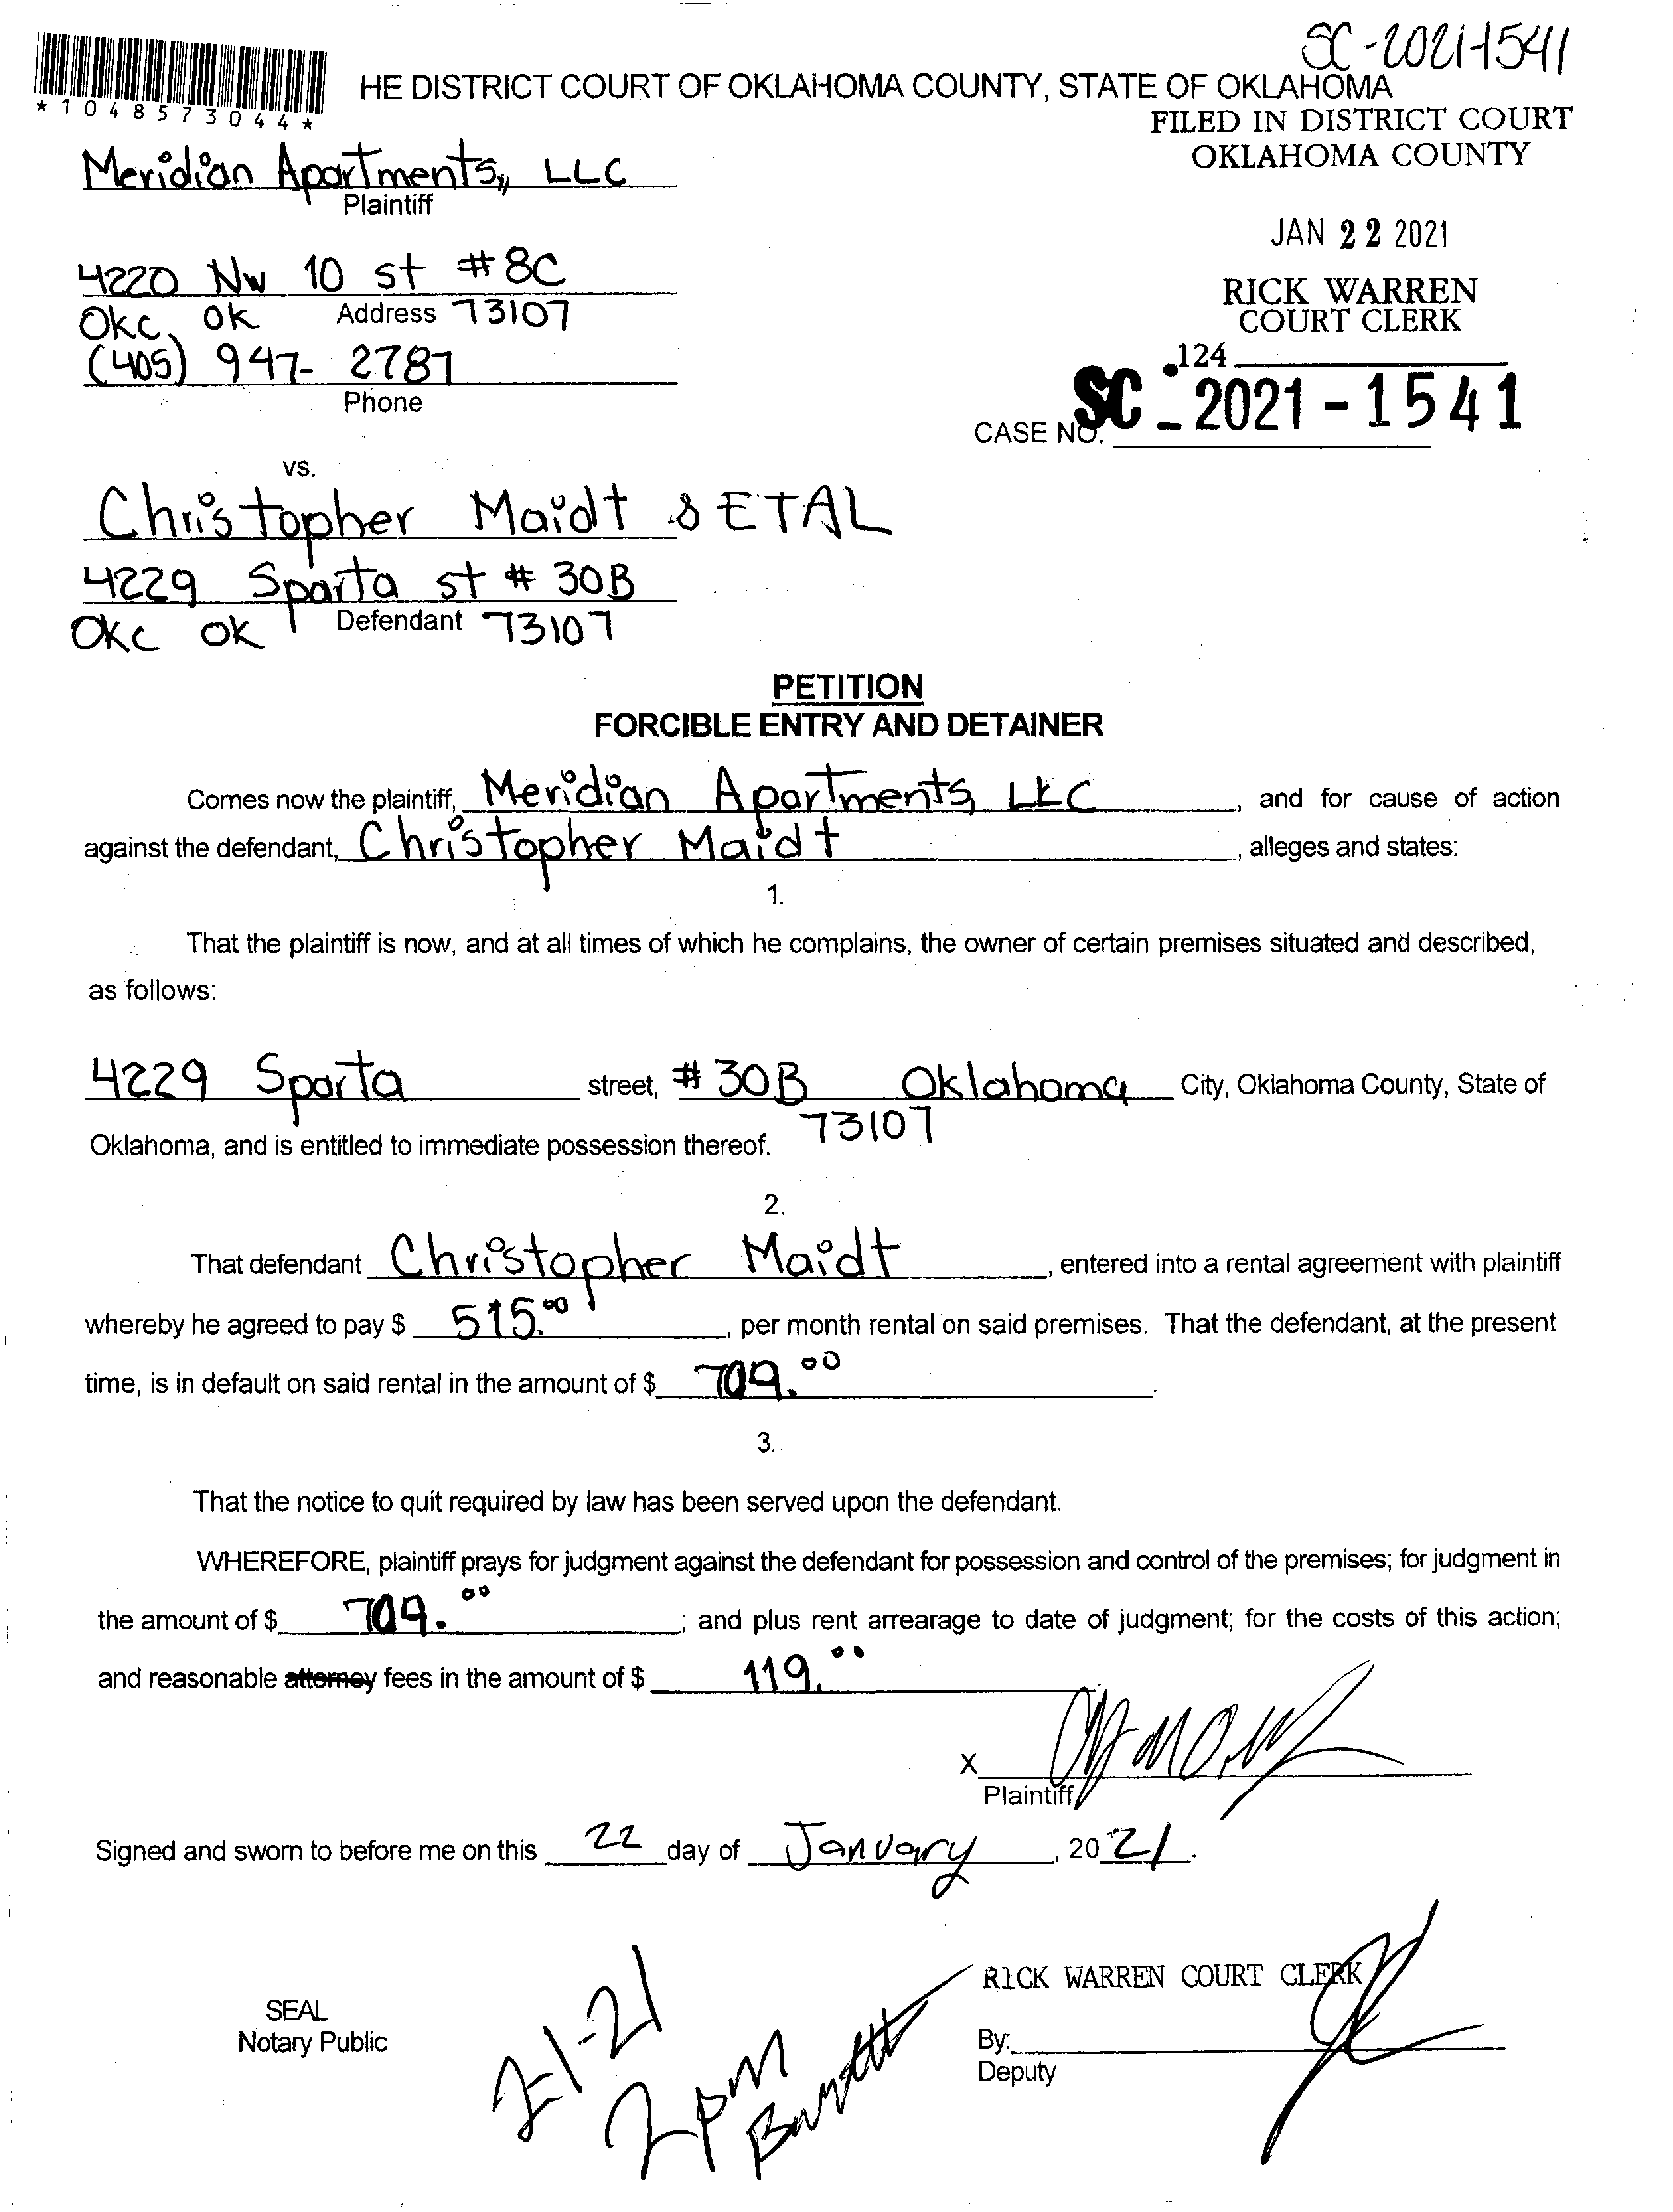 SC-2021-1541
*1048573044*
HE DISTRICT COURT OF OKLAHOMA COUNTY, STATE OF OKLAHOMA
FILED IN DISTRICT COURT
OKLAHOMA COUNTY
Meridian Apartments, LLC
Plaintiff
JAN 22 2021
4220 NW 10 st #8C
Address
OKC, OK 73107
RICK WARREN
COURT CLERK
(405) 947-2787
Phone
124
CASE NO. SC-2021-1541
vs.
Christopher Maidt & ETAL
4229 Sparta st # 30B
Defendant
OKC OK 73107
PETITION
FORCIBLE ENTRY AND DETAINER
Comes now the plaintiff, Meridian Apartments, LLC, and for cause of action
against the defendant, Christopher Maidt, alleges and states:
1.
That the plaintiff is now, and at all times of which he complains, the owner of certain premises situated and described,
as follows:
4229 Sparta street, #30B Oklahoma City, Oklahoma County, State of
73107
Oklahoma, and is entitled to immediate possession thereof.
2.
That defendant Christopher Maidt, entered into a rental agreement with plaintiff
whereby he agreed to pay $ 515.00, per month rental on said premises. That the defendant, at the present
time, is in default on said rental in the amount of $ 709.00.
3.
That the notice to quit required by law has been served upon the defendant.
WHEREFORE, plaintiff prays for judgment against the defendant for possession and control of the premises; for judgment in
the amount of $ 709.00; and plus rent arrearage to date of judgment; for the costs of this action;
and reasonable attorney fees in the amount of $ 119.00
X
Plaintiff
Signed and sworn to before me on this 22 day of January, 2021.
RICK WARREN COURT CLERK
SEAL
Notary Public
By:
Deputy
2-1-21
2pm